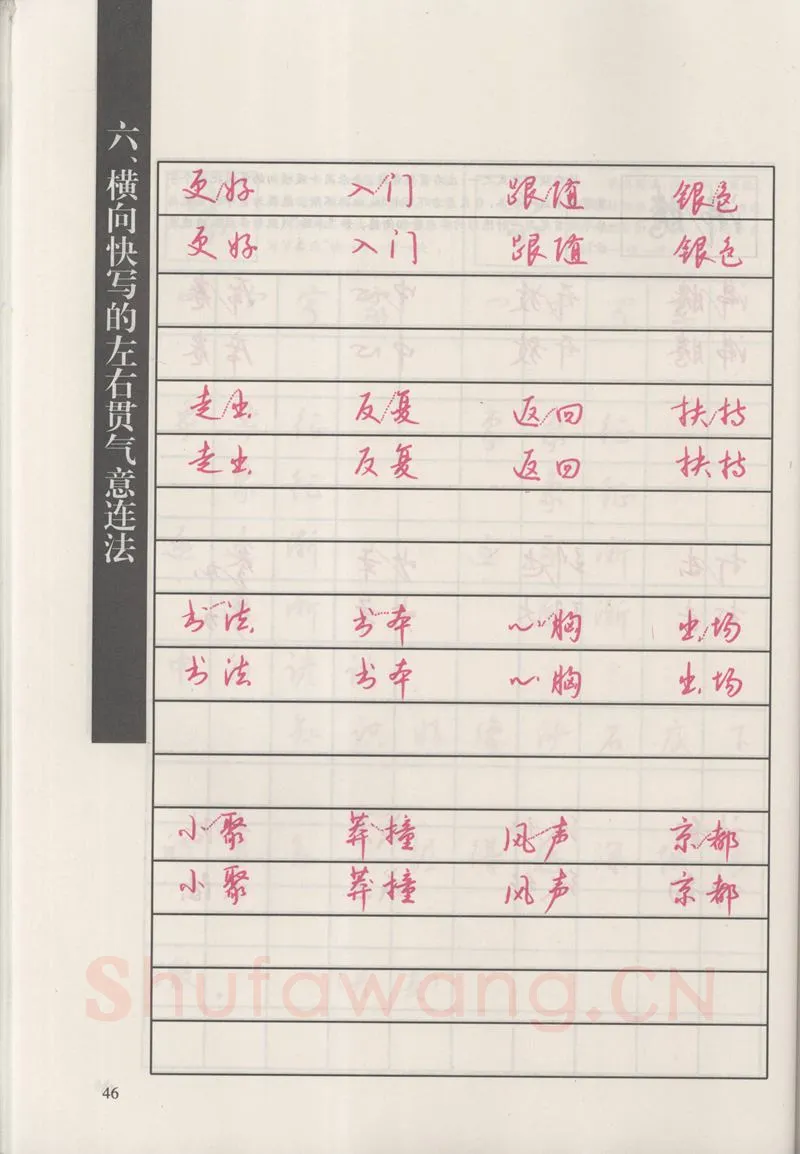 六、横向快写的左右贯气意连法
更好 入门 跟随 银色
更好 入门 跟随 银色
走出 反复 返回 扶持
走出 反复 返回 扶持
书法 书本 心胸 出场
书法 书本 心胸 出场
小聚 莽撞 风声 京都
小聚 莽撞 风声 京都
Shufawang.CN
46